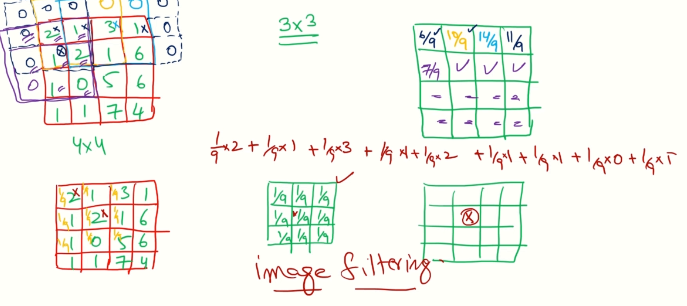 0 0 0 0 0 0
0 2 1 3 1 0
0 1 2 1 6 0
0 1 0 5 6
1 1 7 4
4x4
3x3
6/9 10/9 14/9 11/9
7/9
1/9 x2 + 1/9 x1 + 1/9 x3 + 1/9 x1 + 1/9 x2 + 1/9 x1 + 1/9 x1 + 1/9 x0 + 1/9 x5
1/9 2 1/9 1 1/9 3 1
1/9 1 1/9 2 1/9 1 6
1/9 1 1/9 0 1/9 5 6
1 1 7 4
1/9 1/9 1/9
1/9 1/9 1/9
1/9 1/9 1/9
x
image filtering